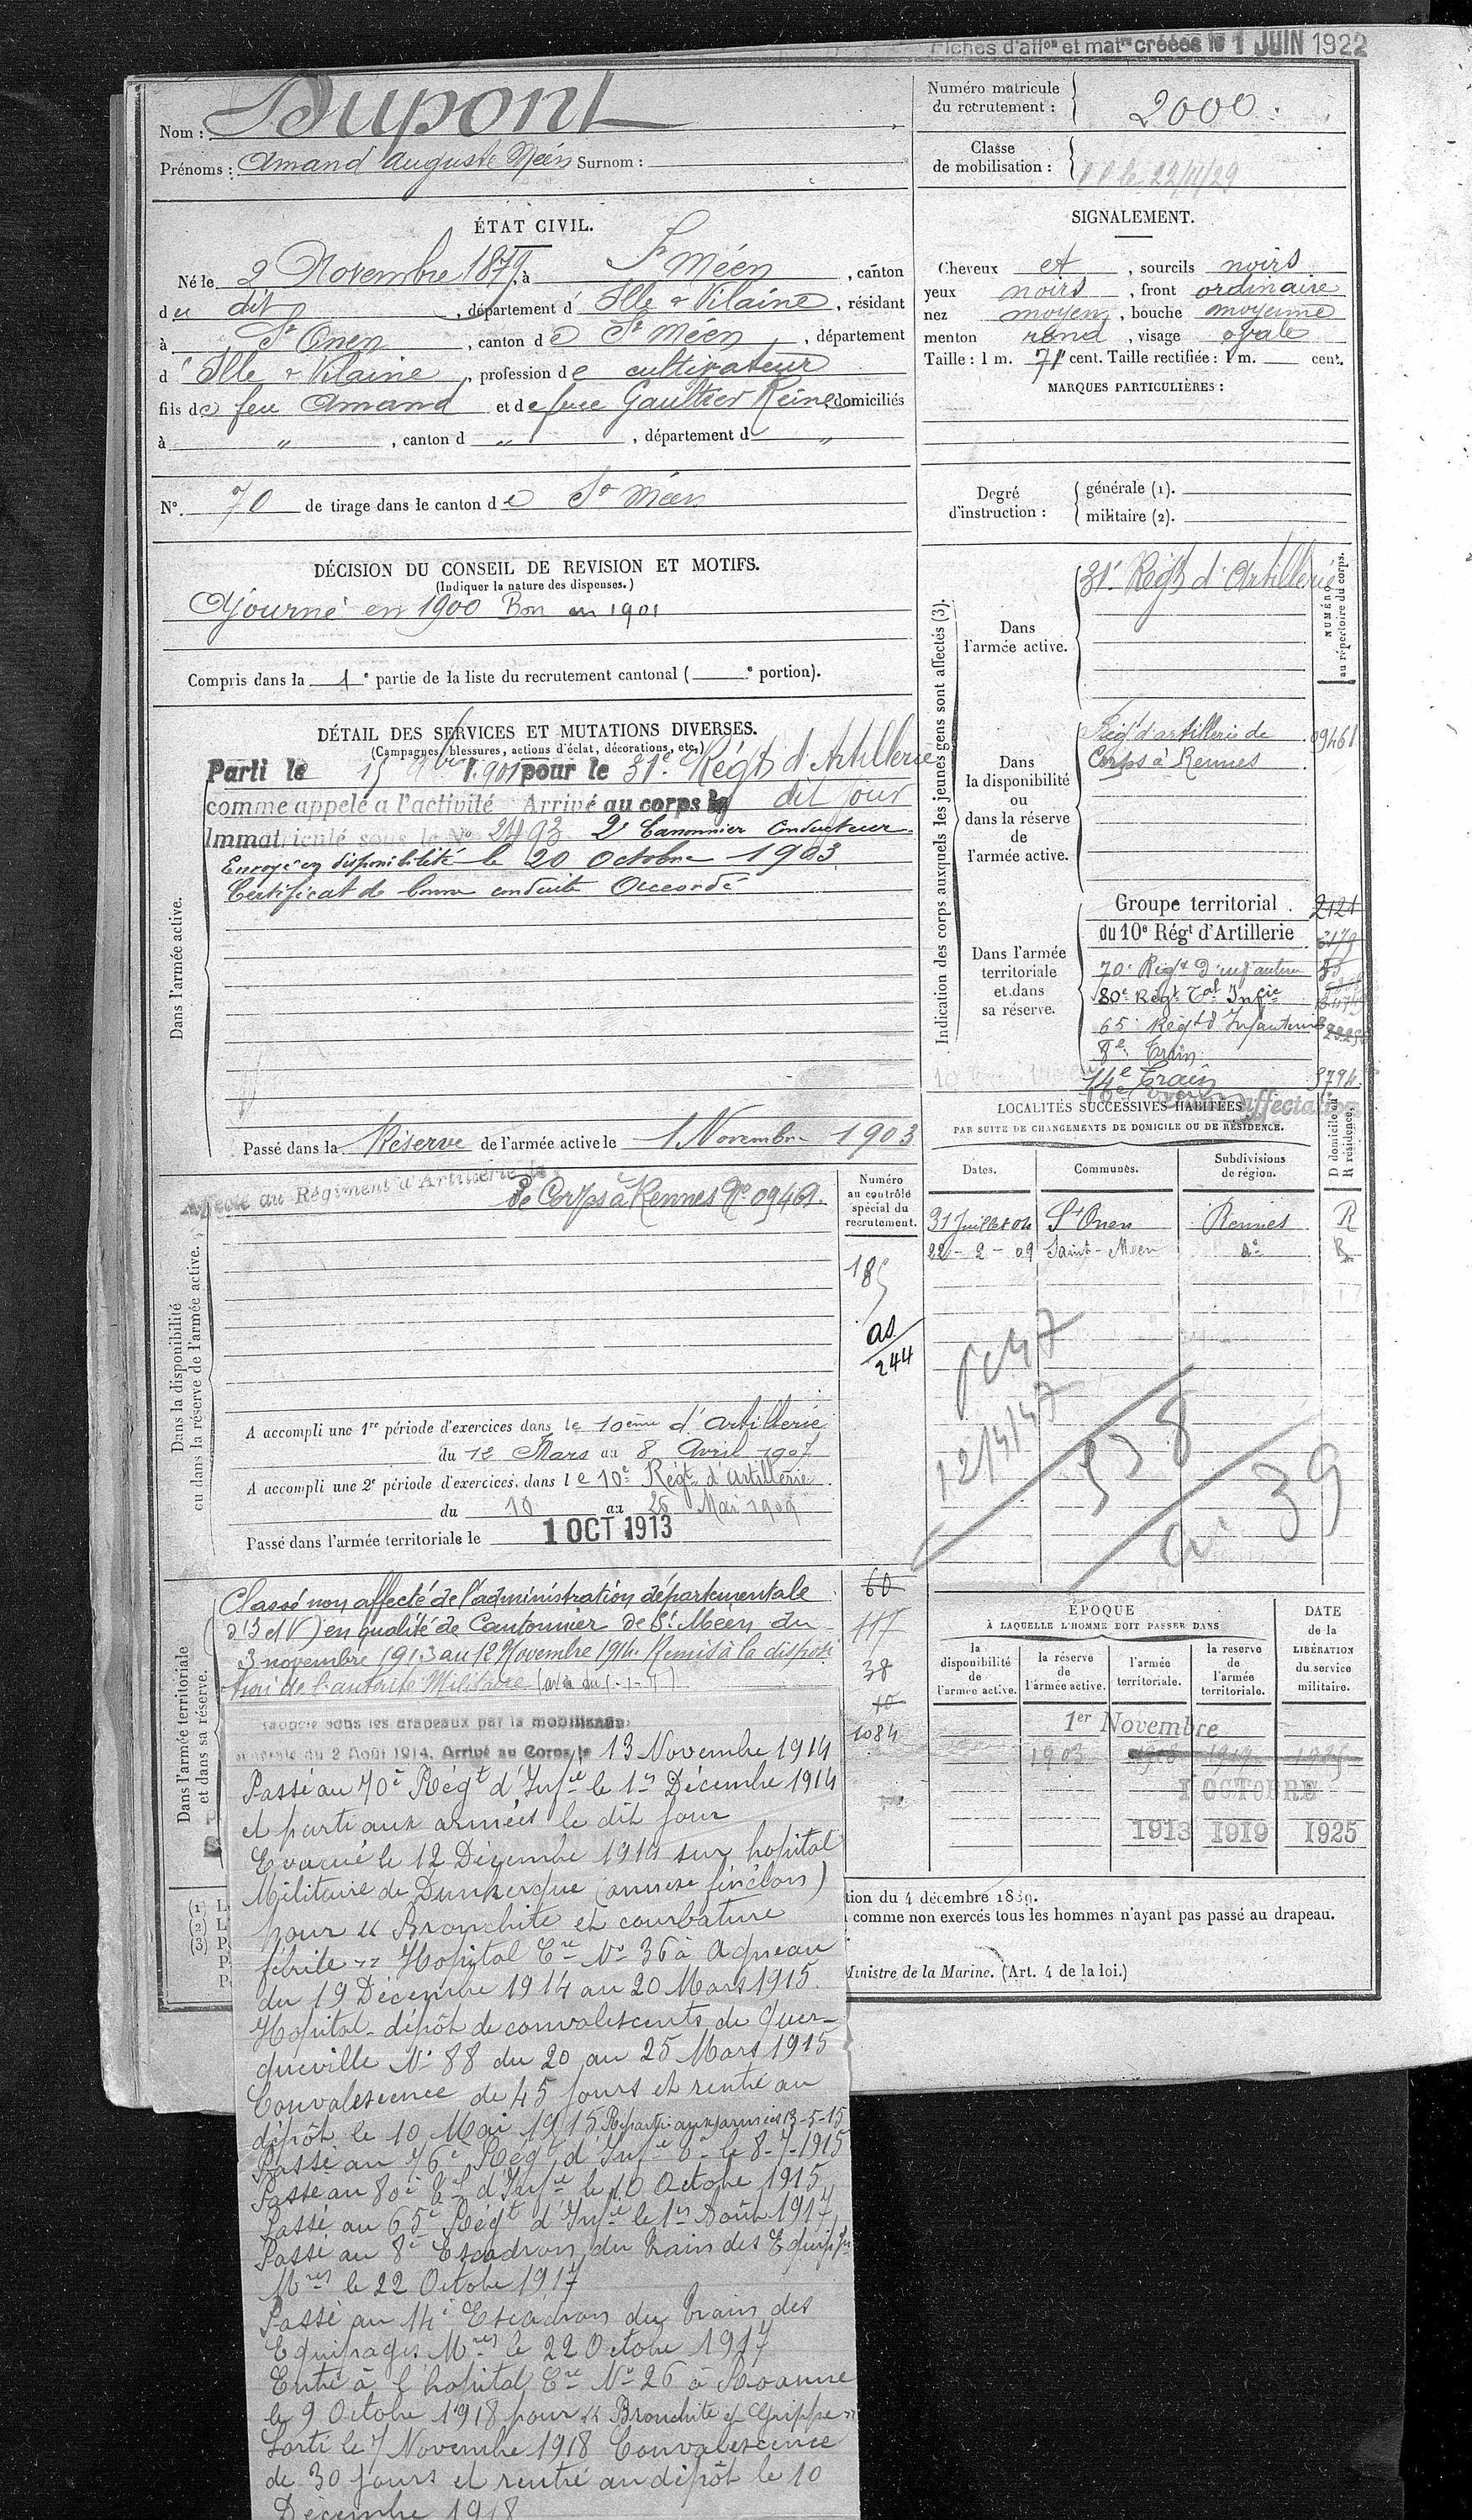 Fiches d'affon et matre créées le 1 JUIN 1922
Nom : Dupont
Prénoms : Amand Auguste Méen Surnom :
Numéro matricule du recrutement : 2000.
Classe de mobilisation :
22/11/29
ÉTAT CIVIL.
Né le 2 Novembre 1879, à St Méen, canton
du dit, département d' Ille & Vilaine, résidant
à St Onen, canton de St Méen, département
d' Ille & Vilaine, profession de cultivateur
fils de feu Amand et de feue Gaultier Reine, domiciliés
à " , canton d " , département d "
N° 70 de tirage dans le canton de St Méen
SIGNALEMENT.
Cheveux et , sourcils noirs
yeux noirs , front ordinaire
nez moyen , bouche moyenne
menton rond , visage ovale
Taille : 1 m. 71 cent. Taille rectifiée : 1 m. cent.
MARQUES PARTICULIÈRES :
Degré d'instruction : générale (1).
militaire (2).
DÉCISION DU CONSEIL DE REVISION ET MOTIFS.
(Indiquer la nature des dispenses.)
Ajourné en 1900 Bon en 1901
Compris dans la 1e partie de la liste du recrutement cantonal ( e portion).
DÉTAIL DES SERVICES ET MUTATIONS DIVERSES.
(Campagnes, blessures, actions d'éclat, décorations, etc.)
Dans l'armée active.
Parti le 15 9bre 1901 pour le 31e Régt d'Artillerie
comme appelé à l'activité Arrivé au corps le dit jour
Immatriculé sous le No 2493 2e Canonnier Conducteur
Envoyé en disponibilité le 20 Octobre 1903
Certificat de bonne conduite Accordé
Passé dans la Réserve de l'armée active le 1 Novembre 1903
Indication des corps auxquels les jeunes gens sont affectés (3).
NUMÉRO au répertoire du corps.
Dans l'armée active.
31e Régt d'Artillerie
Dans la disponibilité ou dans la réserve de l'armée active.
Régt d'artillerie de 09461
Corps à Rennes
Dans l'armée territoriale et dans sa réserve.
Groupe territorial 2121
du 10e Régt d'Artillerie 6179
70e Régt d'infanterie
80e Régt Tal Infie
65e Régt d'Infanterie
8e Train
14e Train 8794
affectation
LOCALITÉS SUCCESSIVES HABITÉES
PAR SUITE DE CHANGEMENTS DE DOMICILE OU DE RÉSIDENCE.
Dates. Communes. Subdivisions de région. D domicile ou R résidence.
31 Juillet 04 St Onen Rennes R
22 - 2 - 09 Saint-Méen do R
Dans la disponibilité ou dans la réserve de l'armée active.
Affecté au Régiment d'Artillerie
de Corps à Rennes No 09461.
Numéro au contrôle spécial du recrutement.
185
as
244
A accompli une 1re période d'exercices dans le 10eme d'Artillerie
du 12 Mars au 8 Avril 1907
A accompli une 2e période d'exercices dans le 10e Régt d'artillerie
du 10 au 26 Mai 1909
Passé dans l'armée territoriale le 1 OCT 1913
538
39
Dans l'armée territoriale et dans sa réserve.
Classé non affecté de l'administration départementale
d'(I et V) en qualité de Cantonnier de St Méen du
3 novembre 1913 au 12 Novembre 1914. Remis à la disposi
tion de l'autorité Militaire
60
117
38
10
1084
Rappelé sous les drapeaux par la mobilisation
générale du 2 Août 1914. Arrivé au Corps le 13 Novembre 1914
Passé au 70e Régt d'Infie le 1er Décembre 1914
et parti aux armées le dit jour
Evacué le 12 Décembre 1914 sur hopital
Militaire de Dunkerque (annexe fénélon)
pour « Bronchite et courbature
fébrile » Hopital Cre No 36 à Agneau
du 19 Décembre 1914 au 20 Mars 1915.
Hopital-dépôt de convalescents de Quer-
queville No 88 du 20 au 25 Mars 1915
Convalescence de 45 jours et rentré au
dépôt le 10 Mai 1915 Reparti aux armées 13-5-15
Passé au 76e Régt d'Infie le 8-7-1915
Passé au 80e Tal d'Infie le 10 Octobre 1915
Passé au 65e Régt d'Infie le 1er Août 1917
Passé au 8e Escadron du Train des Equipges
Mres le 22 Octobre 1917
Passé au 14e Escadron du train des
Equipages Mres le 22 Octobre 1917
Entré à l'hopital Cre No 26 à Roanne
le 9 Octobre 1918 pour « Bronchite et Grippe »
Sorti le 7 Novembre 1918 Convalescence
de 30 jours et rentré au dépôt le 10
Décembre 1918
ÉPOQUE
À LAQUELLE L'HOMME DOIT PASSER DANS
la disponibilité de l'armée active. la réserve de l'armée active. l'armée territoriale. la réserve de l'armée territoriale.
DATE de la LIBÉRATION du service militaire.
1er Novembre
1903
1 OCTOBRE
1913 1919 1925
(1) L
(2) L'
(3) P
tion du 4 décembre 1889.
comme non exercés tous les hommes n'ayant pas passé au drapeau.
Ministre de la Marine. (Art. 4 de la loi.)